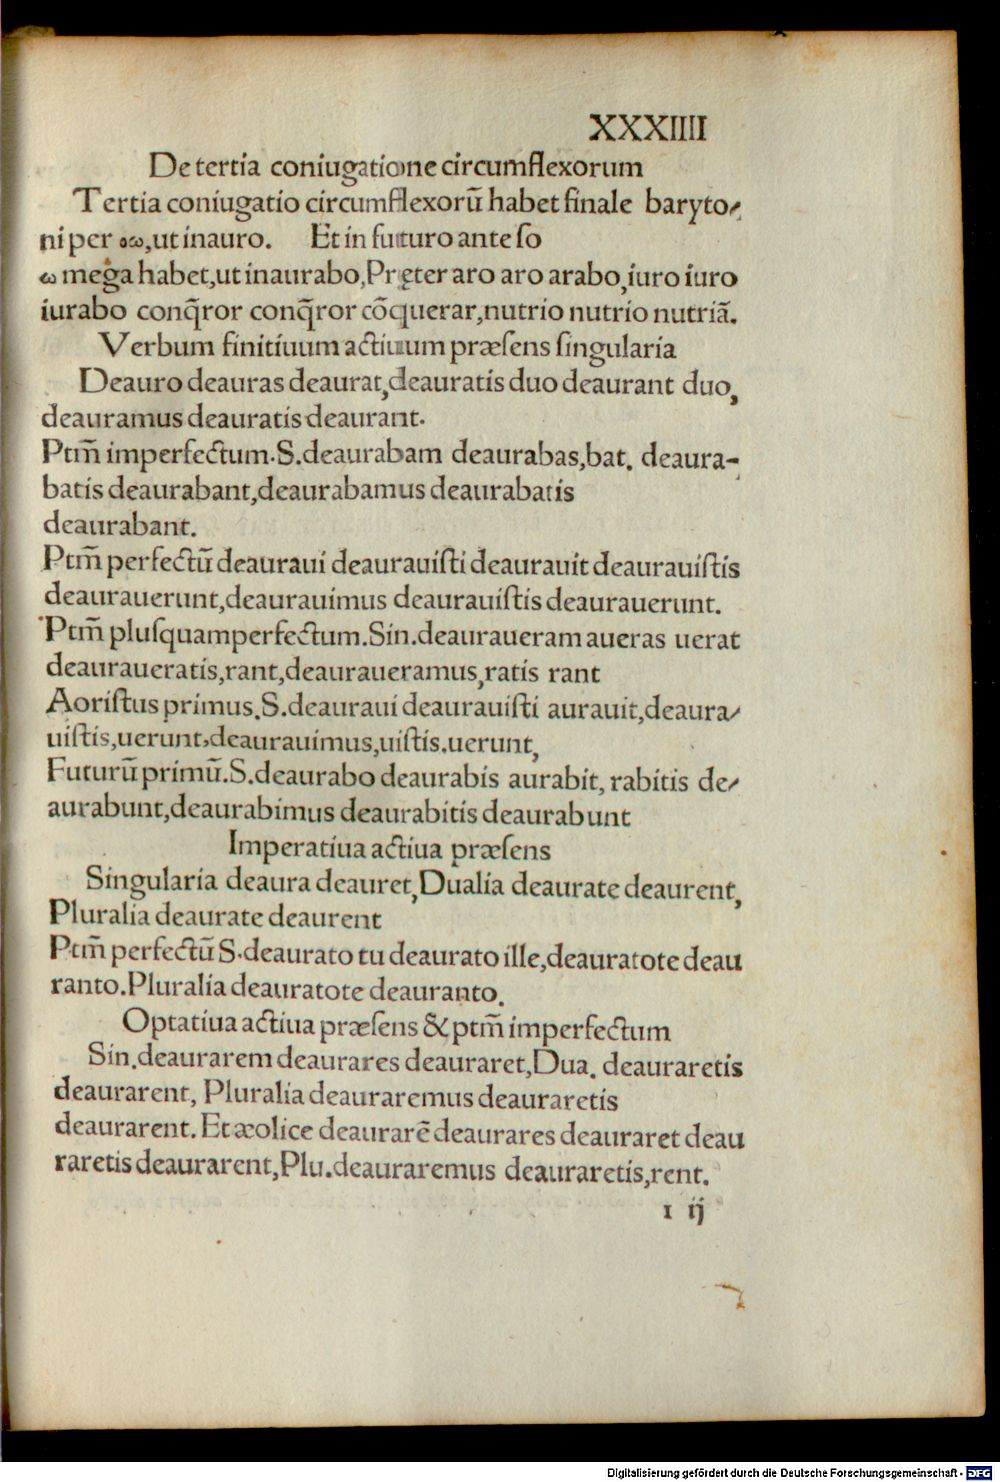 XXXIIII
De tertia coniugatione circumflexorum
Tertia coniugatio circumflexorū habet finale baryto-
ni per οω,ut inauro. Et in futuro ante so
ω mega habet,ut inaurabo,Pręter aro aro arabo,iuro iuro
iurabo conq̄ror conq̄ror cōquerar,nutrio nutrio nutriā.
Verbum finitiuum actiuum præsens singularia
Deauro deauras deaurat,deauratis duo deaurant duo,
deauramus deauratis deaurant.
Ptm̄ imperfectum.S.deaurabam deaurabas,bat. deaura-
batis deaurabant,deaurabamus deaurabatis
deaurabant.
Ptm̄ perfectū deauraui deaurauisti deaurauit deaurauistis
deaurauerunt,deaurauimus deaurauistis deaurauerunt.
Ptm̄ plusquamperfectum.Sin.deauraueram aueras uerat
deauraueratis,rant,deauraueramus,ratis rant
Aoristus primus.S.deauraui deaurauisti aurauit,deaura-
uistis,uerunt,deaurauimus,uistis.uerunt,
Futurū primū.S.deaurabo deaurabis aurabit, rabitis de-
aurabunt,deaurabimus deaurabitis deaurabunt
Imperatiua actiua præsens
Singularia deaura deauret,Dualia deaurate deaurent,
Pluralia deaurate deaurent
Ptm̄ perfectū S.deaurato tu deaurato ille,deauratote deau
ranto.Pluralia deauratote deauranto.
Optatiua actiua præsens & ptm̄ imperfectum
Sin.deaurarem deaurares deauraret,Dua. deauraretis
deaurarent, Pluralia deauraremus deauraretis
deaurarent. Et æolice deaurarē deaurares deauraret deau
raretis deaurarent,Plu.deauraremus deauraretis,rent.
ı ij
Digitalisierung gefördert durch die Deutsche Forschungsgemeinschaft - DFG